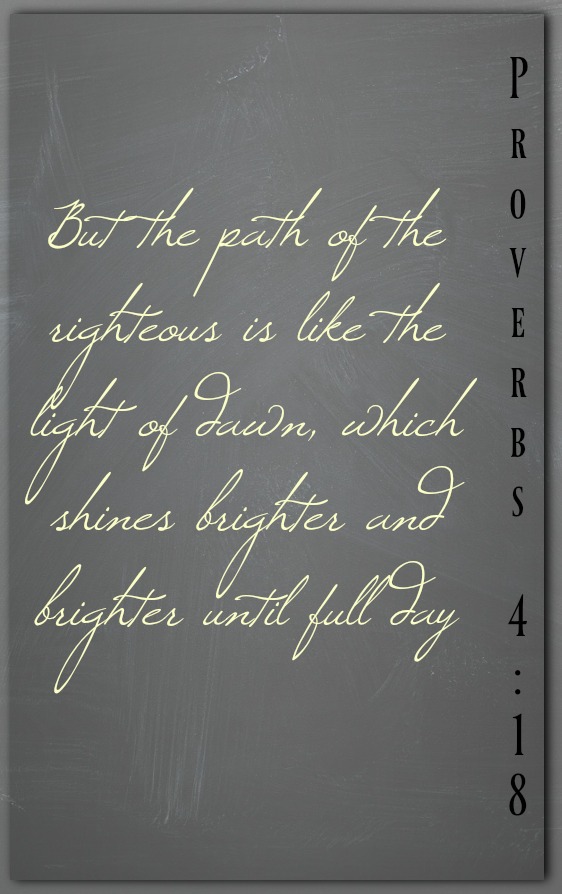 But the path of the
righteous is like the
light of dawn, which
shines brighter and
brighter until full day
PROVERBS 4:18